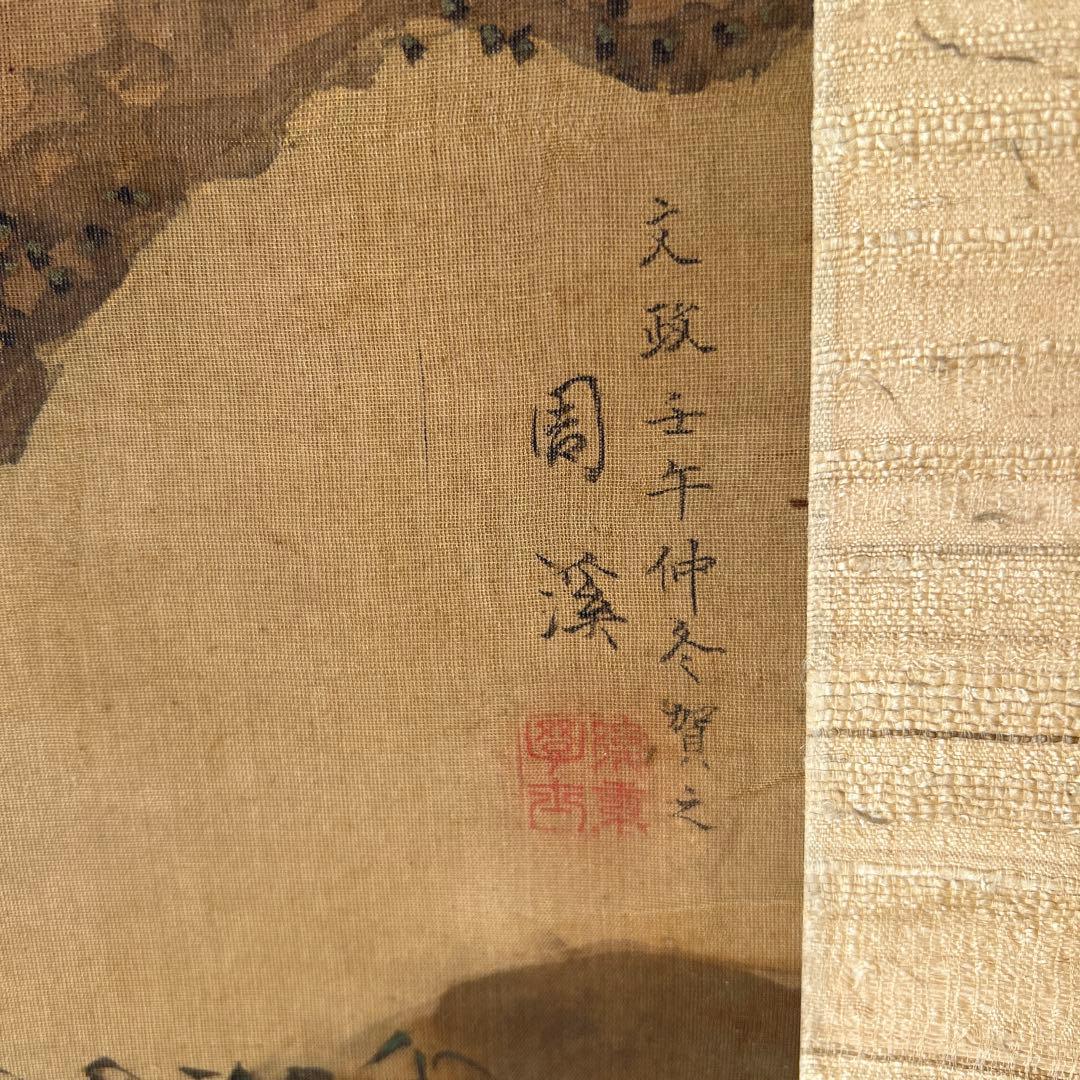 文政壬午仲冬賀之
周溪